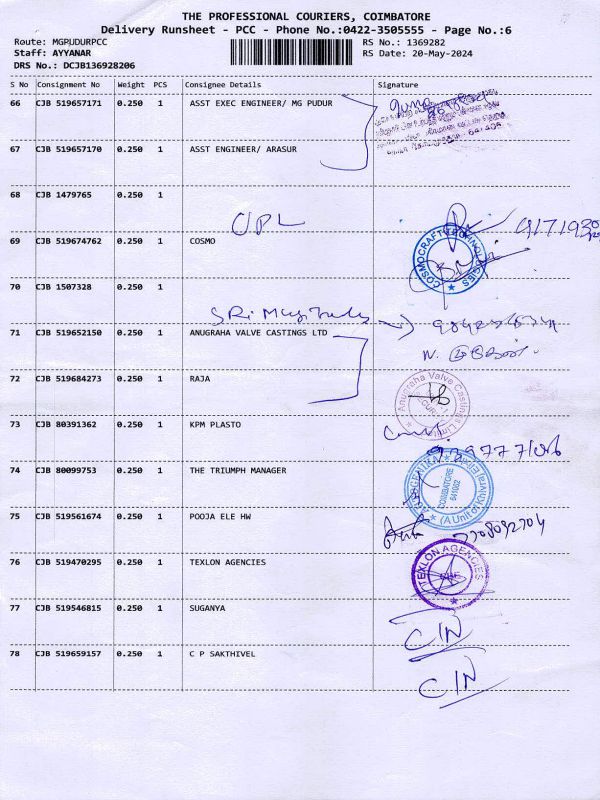 THE PROFESSIONAL COURIERS, COIMBATORE
Delivery Runsheet - PCC - Phone No.:0422-3505555 - Page No.:6
Route: MGPUDURPCC RS No.: 1369282
Staff: AYYANAR RS Date: 20-May-2024
DRS No.: DCJB136928206
S No Consignment No Weight PCS Consignee Details Signature
66 CJB 519657171 0.250 1 ASST EXEC ENGINEER/ MG PUDUR
67 CJB 519657170 0.250 1 ASST ENGINEER/ ARASUR
68 CJB 1479765 0.250 1
UPL
69 CJB 519674762 0.250 1 COSMO
COSMOCRAFT TECHNOLOGIES
70 CJB 1507328 0.250 1
71 CJB 519652150 0.250 1 ANUGRAHA VALVE CASTINGS LTD
72 CJB 519684273 0.250 1 RAJA
Anugraha Valve Castings Limited
73 CJB 80391362 0.250 1 KPM PLASTO
74 CJB 80099753 0.250 1 THE TRIUMPH MANAGER
COIMBATORE
641062
75 CJB 519561674 0.250 1 POOJA ELE HW
7708092704
76 CJB 519470295 0.250 1 TEXLON AGENCIES
TEXLON AGENCIES
77 CJB 519546815 0.250 1 SUGANYA
C/N
78 CJB 519659157 0.250 1 C P SAKTHIVEL
C/N